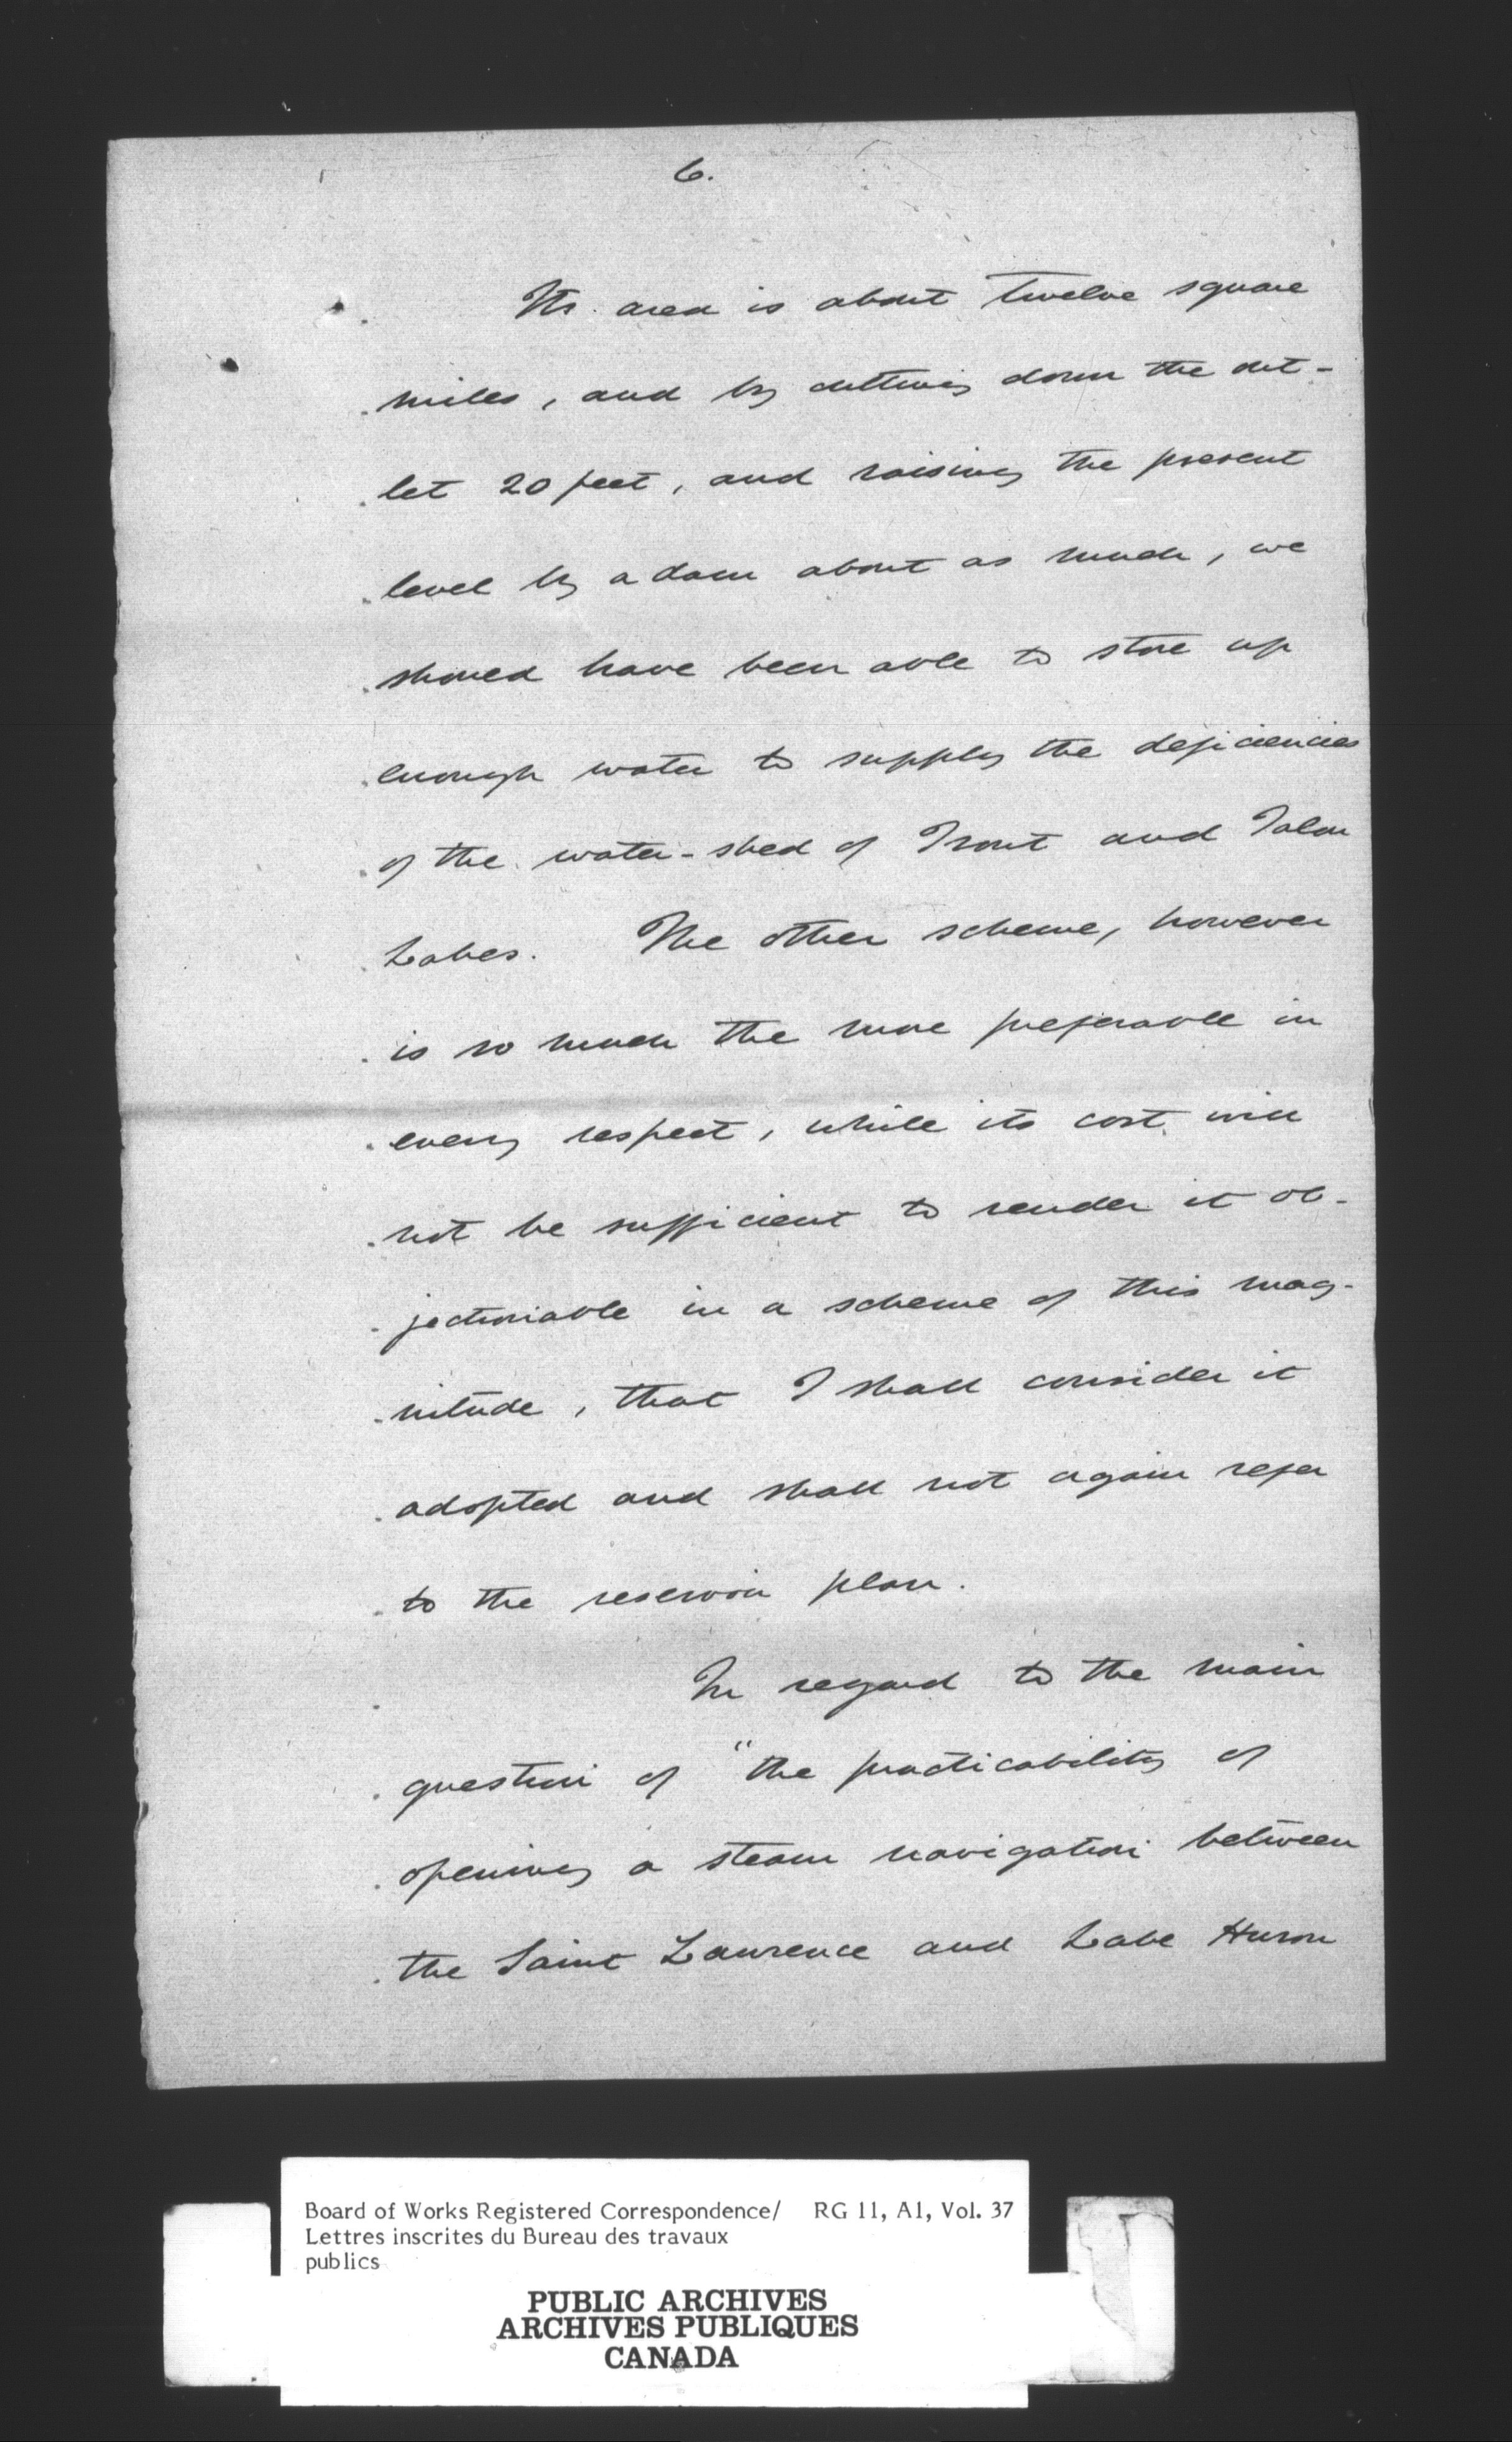 6.
Its area is about twelve square
miles, and by cutting down the out-
let 20 feet, and raising the present
level by a dam about as much, we
should have been able to store up
enough water to supply the deficiencies
of the water-shed of Trout and Talon
Lakes. The other scheme, however
is so much the more preferable in
every respect, while its cost will
not be sufficient to render it ob-
jectionable in a scheme of this mag-
nitude, that I shall consider it
adopted and shall not again refer
to the reservoir plan.
In regard to the main
question of "the practicability of
opening a steam navigation between
the Saint Lawrence and Lake Huron
Board of Works Registered Correspondence/ RG 11, A1, Vol. 37
Lettres inscrites du Bureau des travaux
publics
PUBLIC ARCHIVES
ARCHIVES PUBLIQUES
CANADA